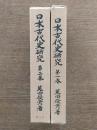 日本古代史研究 第二巻 荒田俊秀著
日本古代史研究 第一巻 荒田俊秀著